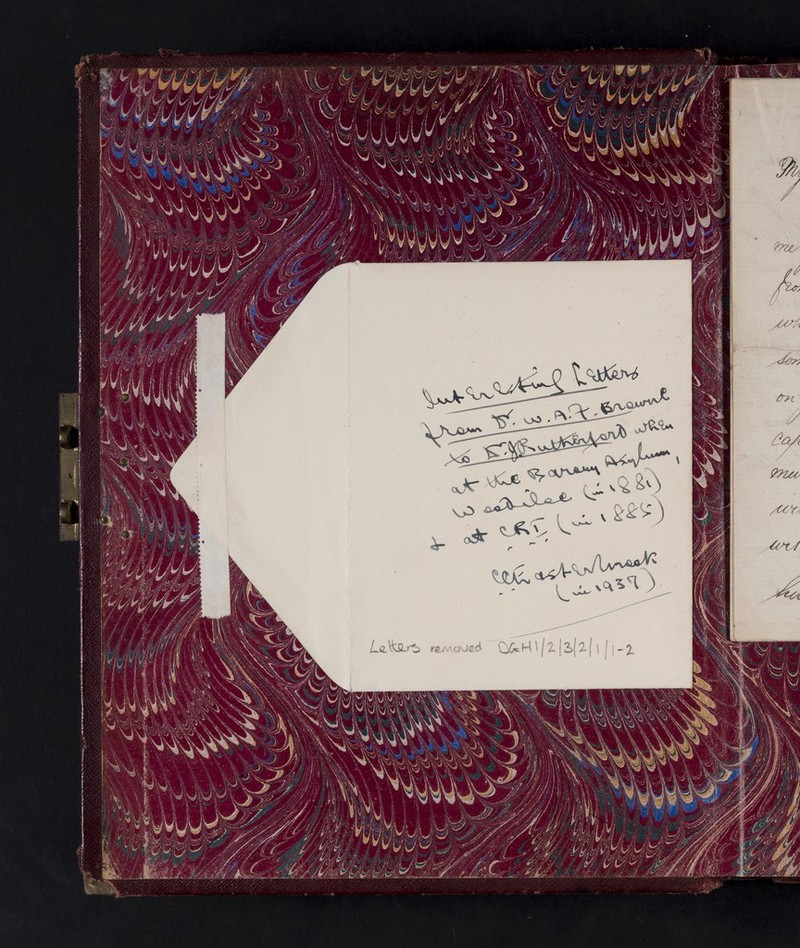 Interesting Letters
from Dr. W.A.F. Browne
to Dr. J Rutherford when
at the Barony Asylum,
Woodilee (in 1881)
& at C.R.I. (in 1885)
CC Easterbrook
(in 1937)
Letters removed DGH1/2/3/2/1/1-2
My
me
from
on